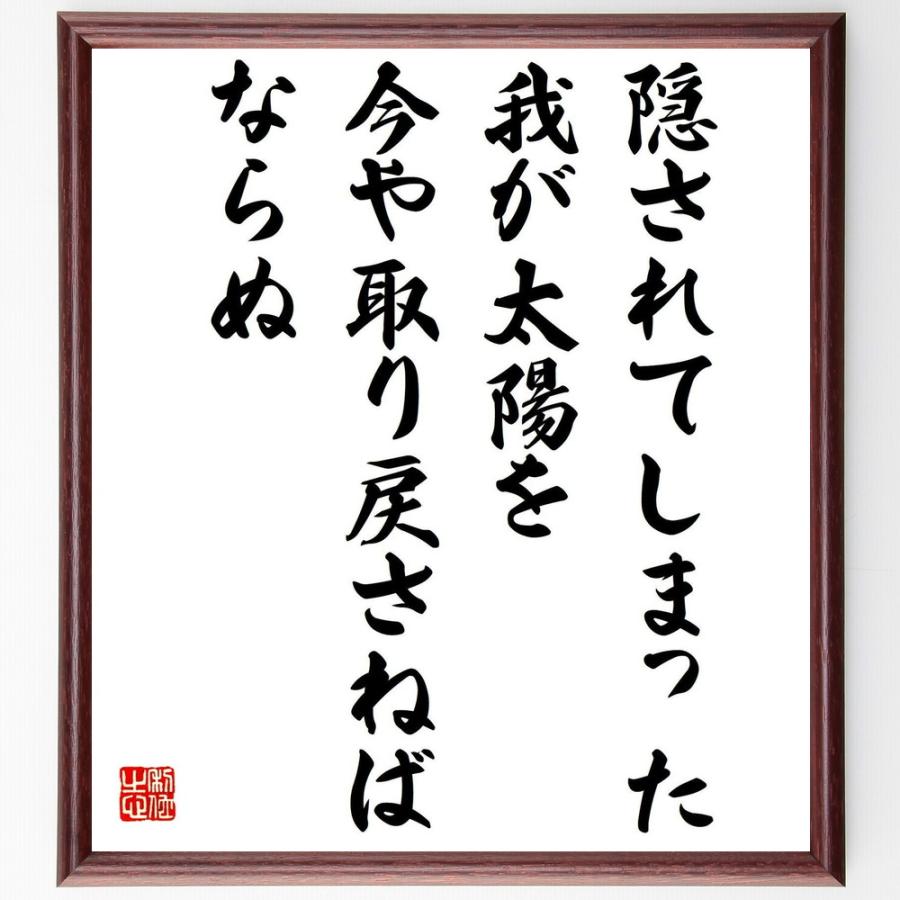 隠されてしまった
我が太陽を
今や取り戻さねば
ならぬ